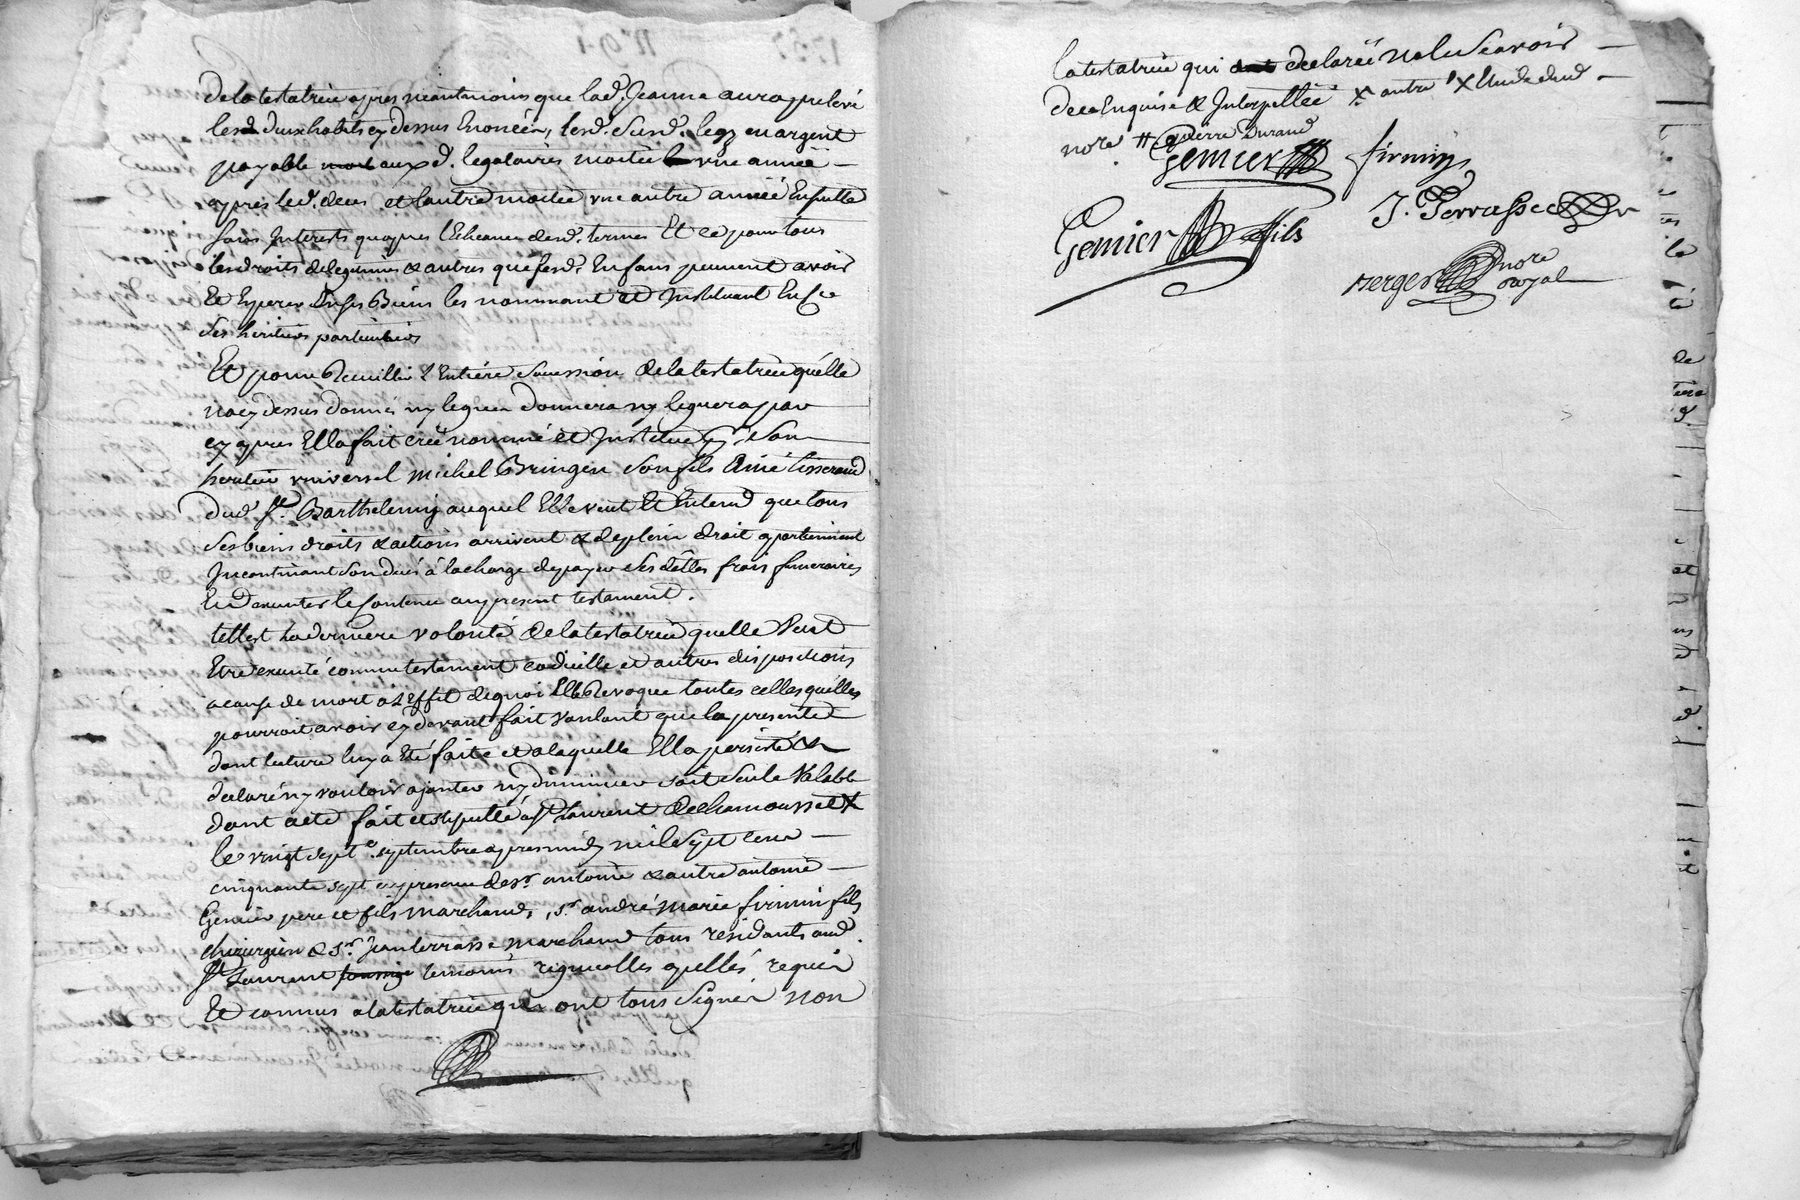 de la testatrice apres neantmoins que lad. Jeanne aura prelevé
lesd. deux habits cy dessus Enoncés, lesd. susd. legs en argent
payable aux d. legataires moitié une année
apres led. deces et l'autre moitié une autre année Ensuitte
sans Interests qu'apres l'Echeance desd. termes Et ce pour tous
les droits de legitimes & autres que sesd. Enfans peuvent avoir
Et Esperer En ses Biens les nommant et Instituant En ce
ses heritiers particuliers
Et pour Recuillir l'Entiere succession de la testatrice qu'elle
na cy dessus donné ny legué donnera ny leguera par
cy apres Ella fait créé nommé et Institué son
heritier universel michel Bringen son fils Ainé tisserand
dud. St. Barthelemy auquel Elle veut Et Entend que tous
ses biens droits & actions arrivent & de plein droit apartiennent
Incontinant son deces à la charge de payer ses dettes frais funeraires
Et d'executer le Contenu au present testament.
telle est la derniere volonté de la testatrice quelle Veut
Etre executé comme testament codicille et autres dispositions
a cause de mort a l'Effet de quoi Elle Revoque toutes celles quelles
pourroit avoir cy devant fait Voulant que la presente
dont lecture luy a Eté faite et a laquelle Ella persisté &
declaré ny vouloir ajouter ny diminuer soit seule Valable
dont acte fait et stipullé a St Laurent de chamousset X
le vingt sept e. septembre apres midy mil sept cent
cinquante sept en presence de sr. antoine & autre antoine
Gemier pere et fils marchand, sr. andré marie firmin fils
chirurgien & sr. jean terrasse marchand tous résidants aud.
St Laurent temoins apellés requis
Et connus a la testatrice qui ont tous signés non
la testatrice qui declaré ne le scavoir
de ce Enquise & Interpellée X autre
nore # guerre Durand
Gemier firmin
Gemier fils J. Terrasse
Berger nore
royal